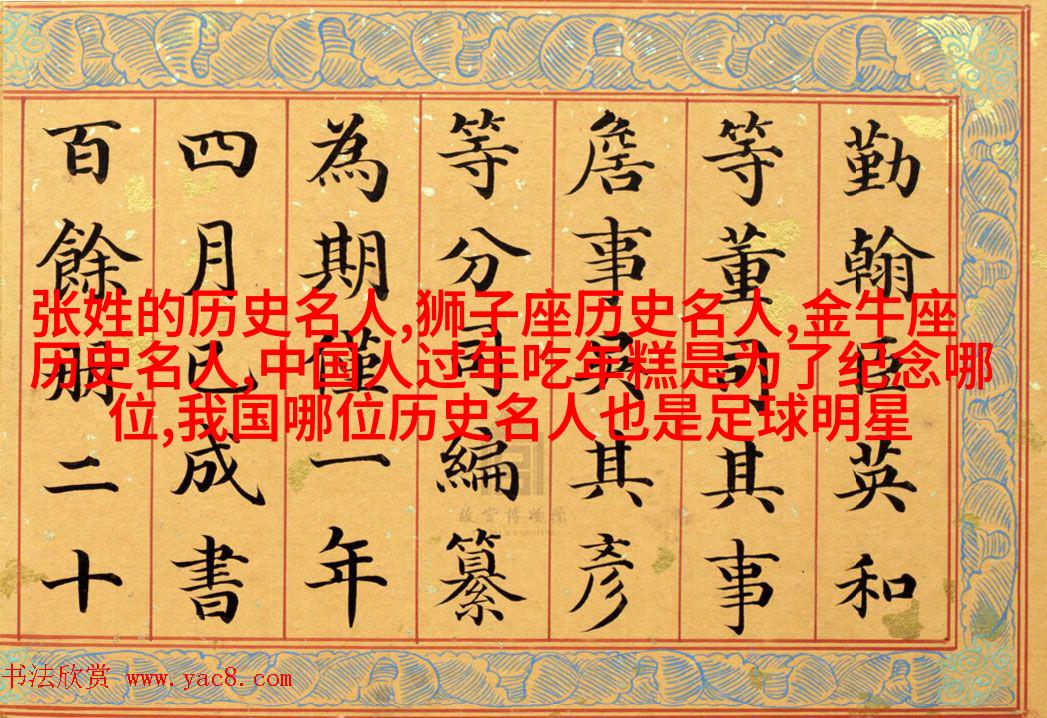 勤翰臣英和
等董司其事
詹事吳其彥
等分同編纂
為期僅一年
四月已成書
百餘册二十
张姓的历史名人,狮子座历史名人,金牛座
历史名人,中国人过年吃年糕是为了纪念哪
位,我国哪位历史名人也是足球明星
故宫博物院
书法欣赏 www.yac8.com